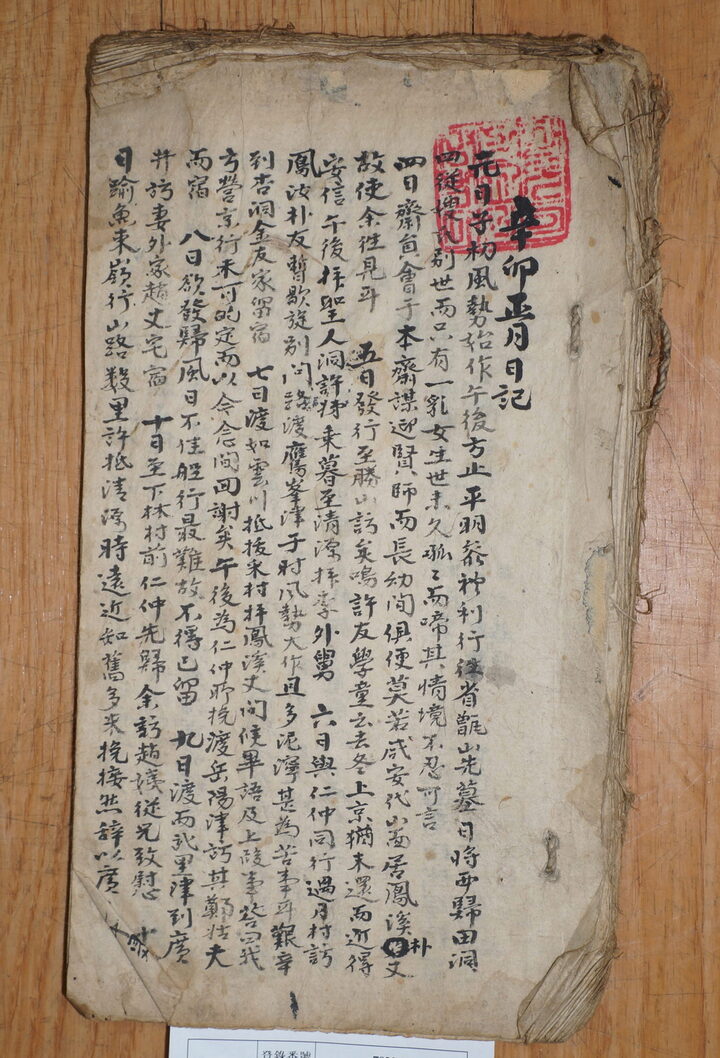 辛卯正月日記
元日子初風勢始作午後方止平明參神利行往省甑山先墓日將西歸田洞
四從嫂氏別世而只有一乳女生世未久孤〻而啼其情境不忍可言
四日齋員會于本齋謀迎賢師而長幼間俱便莫若咸安代山面居鳳溪朴丈
故使余往見耳 五日發行至勝山訪矣鳴許友學童云去冬上京猶未還而近得
安信午後拜聖人洞許乘暮至清源拜李外舅 六日與仁仲同行過月村訪
鳳汝朴友暫歇旋別問路渡鷹峯津于時風勢大作且多泥濘甚為苦事耳艱辛
到杏洞金友家留宿 七日渡如雲川抵後米村拜鳳溪丈問候畢語及上陵事答曰我
方營京行未可的定而以令念間回謝矣午後為仁仲所挽渡岳陽津訪其鄭姑夫
而宿 八日欲發歸風日不佳船行最難故不得已留 九日渡而武里津到廣
井訪妻外家趙丈宅宿 十日至下林村前仁仲先歸余訪趙從兄致慰
日踰魚束嶺行山路數里許抵清源時遠近知舊多來挽接然辭以廣
登錄番號